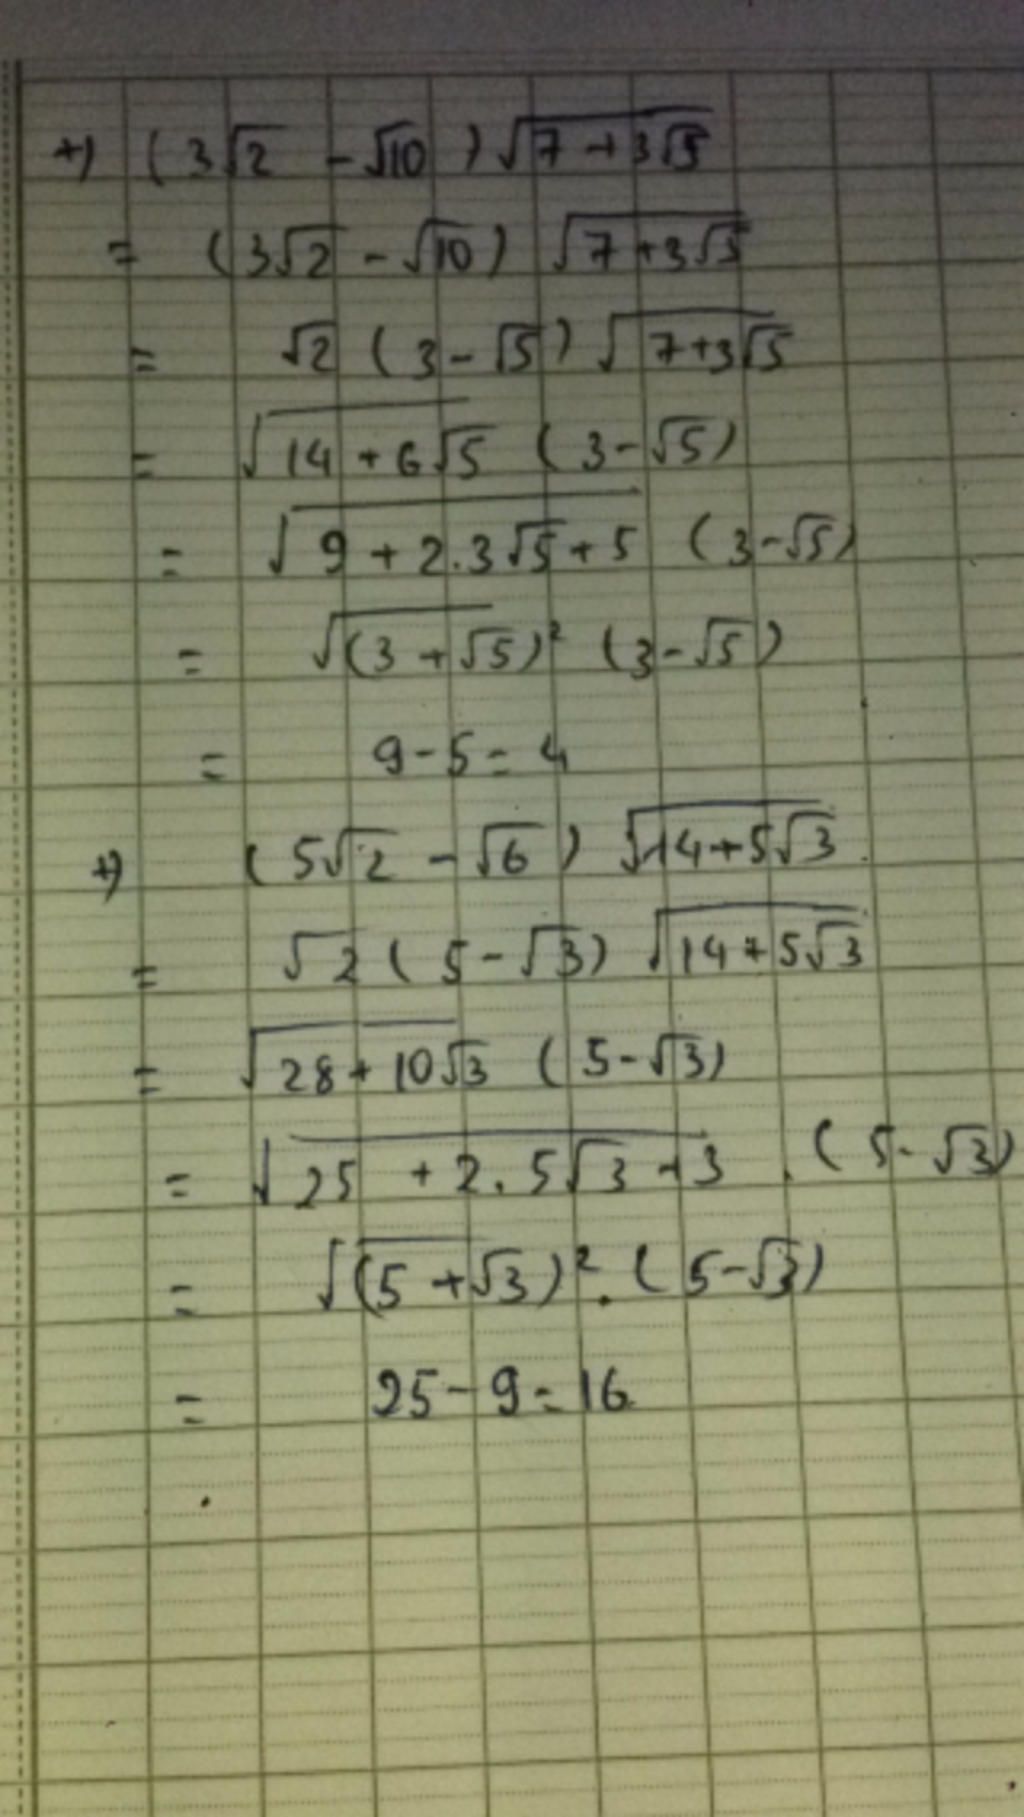 +) (3√2 - √10) √(7 + 3√5)
= (3√2 - √10) √(7 + 3√5)
= √2 (3 - √5) √(7 + 3√5)
= √(14 + 6√5) (3 - √5)
= √(9 + 2.3√5 + 5) (3 - √5)
= √((3 + √5)²) (3 - √5)
= 9 - 5 = 4
+) (5√2 - √6) √(14 + 5√3)
= √2 (5 - √3) √(14 + 5√3)
= √(28 + 10√3) (5 - √3)
= √(25 + 2.5√3 + 3) . (5 - √3)
= √((5 + √3)²) . (5 - √3)
= 25 - 9 = 16